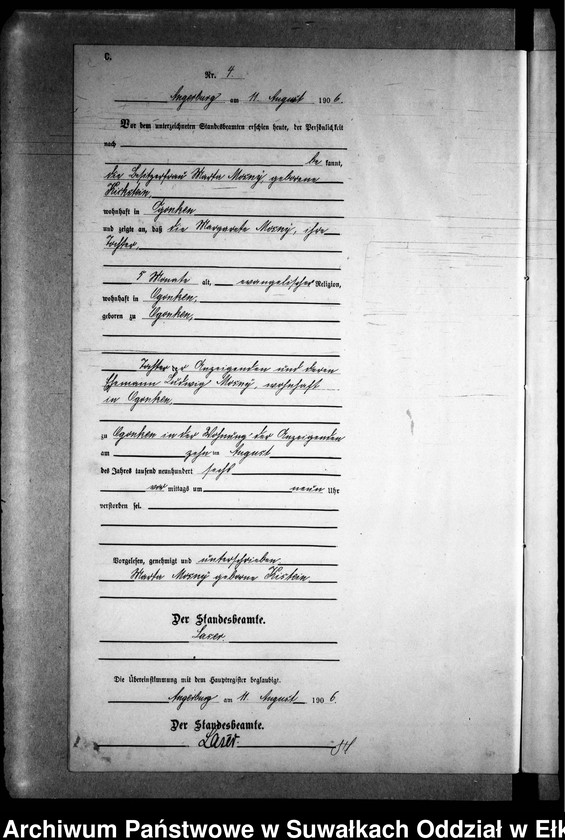 C.
Nr. 4
Angerburg am 11. August 1906.
Vor dem unterzeichneten Standesbeamten erschien heute, der Persönlichkeit
nach
be kannt,
die Besitzerfrau Marta Mosný, geborene
wohnhaft in Ogonken
und zeigte an, daß die Margarete Mosný, ihre
Tochter,
5 Monate alt, evangelischer Religion,
wohnhaft in Ogonken,
geboren zu Ogonken,
Tochter der Anzeigenden und deren
Ehemann Ludwig Mosný, wohnhaft
in Ogonken,
zu Ogonken in der Wohnung der Anzeigenden
am zehn ten August
des Jahres tausend neunhundert sechs
vor mittags um neun Uhr
verstorben sei.
Vorgelesen, genehmigt und unterschrieben
Marta Mosný geborne
Der Standesbeamte.
Laser.
Die Übereinstimmung mit dem Hauptregister beglaubigt.
Angerburg am 11. August 1906.
Der Standesbeamte.
Laser.
Archiwum Państwowe w Suwałkach Oddział w Ełk